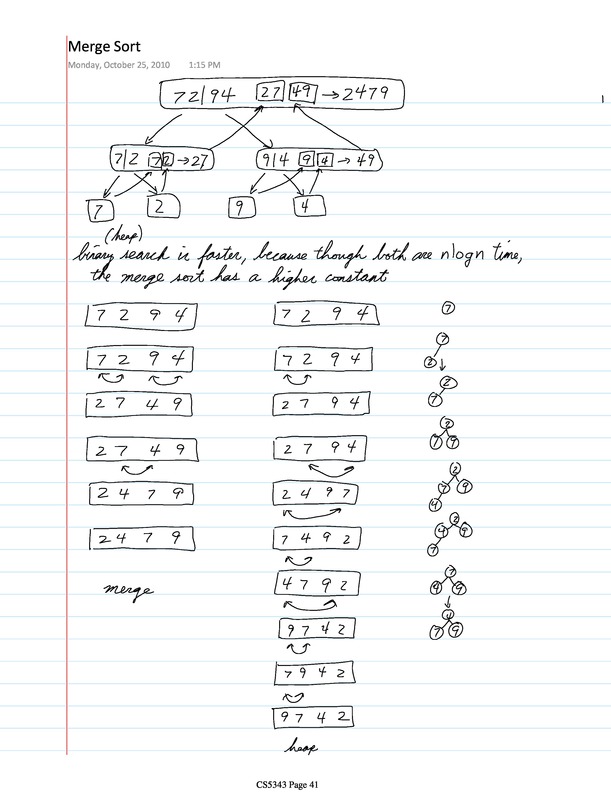 Merge Sort
Monday, October 25, 2010 1:15 PM
1
72|94 27 49 → 2479
7|2 72 → 27 9|4 9 4 → 49
7 2 9 4
(heap)
binary search is faster, because though both are nlogn time,
the merge sort has a higher constant
7 2 9 4 7 2 9 4 7
7 2 9 4 7 2 9 4 7 2
2 7 4 9 2 7 9 4 2 7
2 7 4 9 2 7 9 4 2 7 9
2 4 7 9 2 4 9 7 2 7 9 4
2 4 7 9 7 4 9 2 2 4 9 7
merge 4 7 9 2 7 4 9
9 7 4 2 4 7 9
7 9 4 2
9 7 4 2
heap
CS5343 Page 41